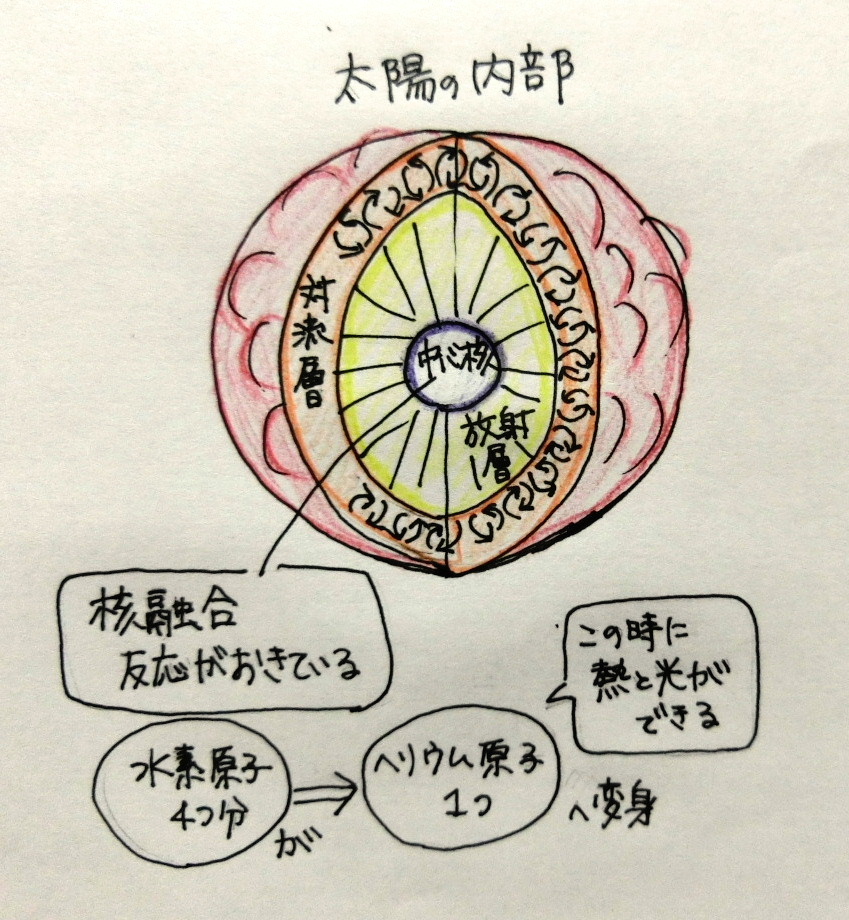 太陽の内部
対流層
中心核
放射層
核融合
反応がおきている
この時に
熱と光が
できる
水素原子
4つ分
が
ヘリウム原子
1つ
へ変身